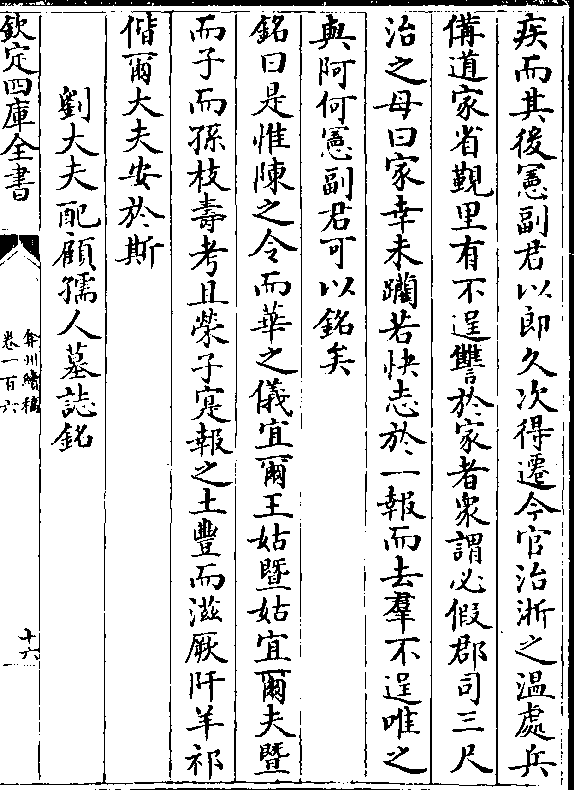 疾而其後憲副君以郎久次得遷今官治浙之温處兵
備道家省覲里有不逞讐於家者衆謂必假郡司三尺
治之母曰家幸未躪若快志於一報而去羣不逞唯之
與阿何憲副君可以銘矣
銘曰是惟陳之令而華之儀宜爾王姑暨姑宜爾夫暨
而子而孫枝壽考且榮子寔報之土豐而滋厥阡羊祁
偕爾大夫安於斯
劉大夫配顧孺人墓誌銘
欽定四庫全書
弇州續稿
卷一百六
十六